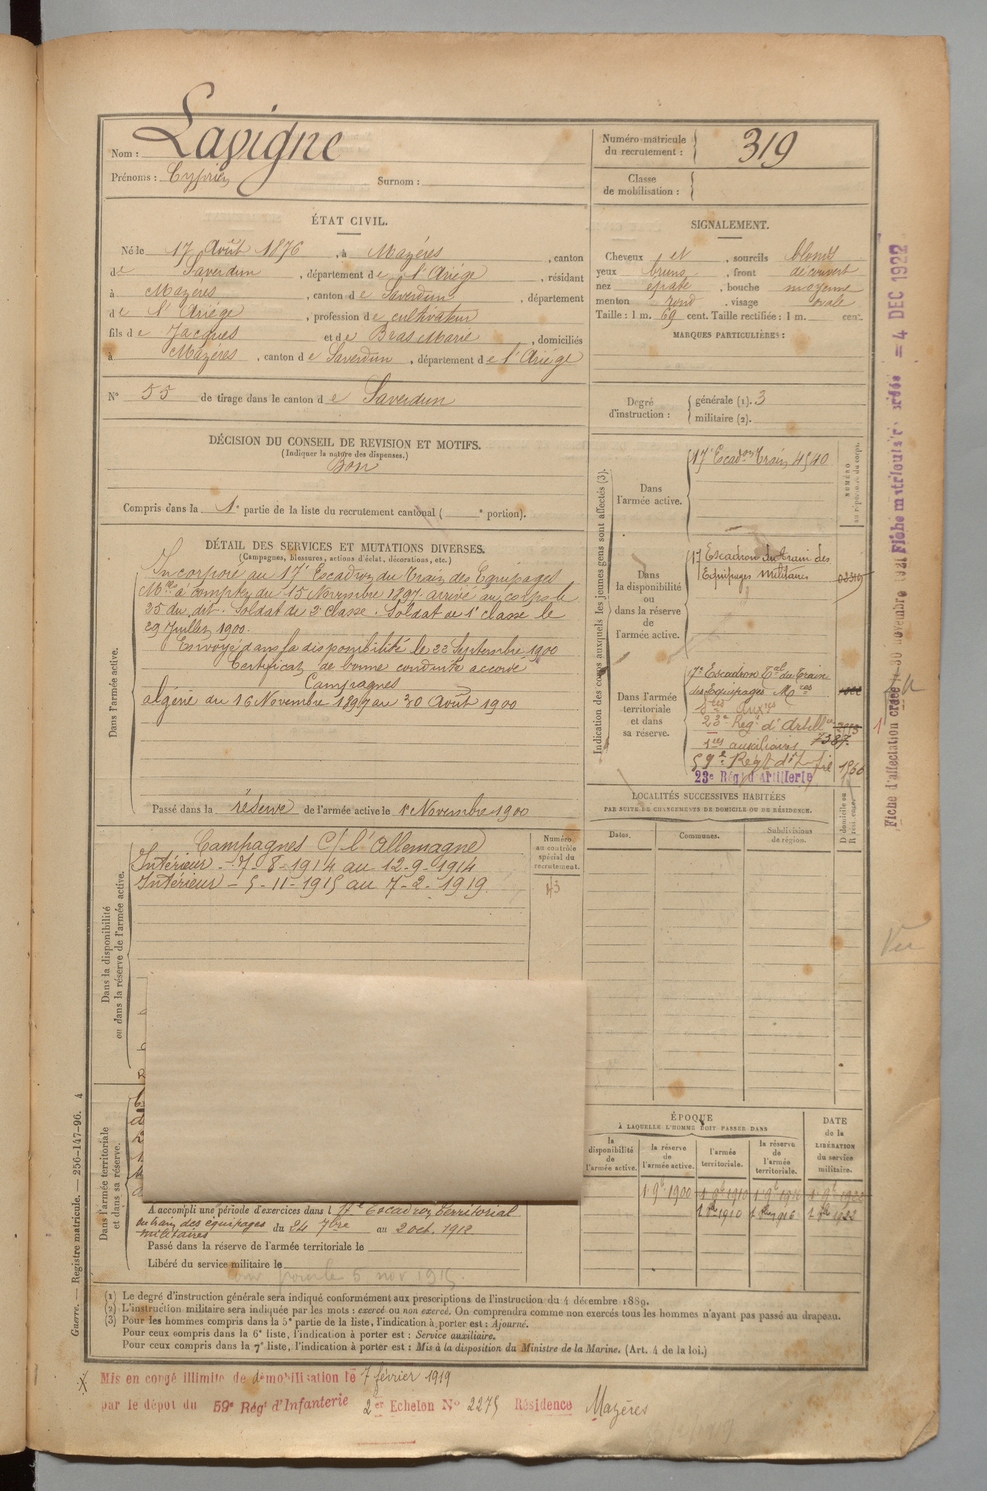 Nom : Lavigne
Prénoms : Cyprien Surnom :
Numéro matricule du recrutement : 319
Classe de mobilisation :
ÉTAT CIVIL.
Né le 17 Août 1876, à Mazères, canton
de Saverdun, département de l'Ariège, résidant
à Mazères, canton de Saverdun, département
de l'Ariège, profession de cultivateur
fils de Jacques et de Marie, domiciliés
à Mazères, canton de Saverdun, département de l'Ariège
N° 55 de tirage dans le canton de Saverdun
SIGNALEMENT.
Cheveux et, sourcils blonds
yeux bruns, front découvert
nez épaté, bouche moyenne
menton rond, visage ovale
Taille : 1 m. 69 cent. Taille rectifiée : 1 m. cent.
MARQUES PARTICULIÈRES :
Degré d'instruction : générale (1). 3
militaire (2).
DÉCISION DU CONSEIL DE REVISION ET MOTIFS.
(Indiquer la nature des dispenses.)
Bon
Compris dans la 1e partie de la liste du recrutement cantonal ( e portion).
DÉTAIL DES SERVICES ET MUTATIONS DIVERSES.
(Campagnes, blessures, actions d'éclat, décorations, etc.)
Dans l'armée active.
Incorporé au 17e Escadron du Train des Equipages
Mres à compter du 15 Novembre 1897 arrivé au corps le
25 du dit. Soldat de 2e classe. Soldat de 1e classe le
29 Juillet 1900.
Envoyé dans la disponibilité le 22 Septembre 1900
Certificat de bonne conduite accordé
Campagnes
Algérie du 26 Novembre 1897 au 30 Août 1900
Passé dans la réserve de l'armée active le 1er Novembre 1900
Indication des corps auxquels les jeunes gens sont affectés (3).
Dans l'armée active.
17e Escadron Train 4540
NUMÉRO
au répertoire du corps.
Dans la disponibilité ou dans la réserve de l'armée active.
17 Escadron du Train des
Equipages Militaires
Dans l'armée territoriale et dans sa réserve.
17e Escadron Tal du Train
des Equipages Mres
23e Régt d'Artillie
auxiliaires 7387
59e Régt d'Infie
23e Régt d'Artillerie
LOCALITÉS SUCCESSIVES HABITÉES
PAR SUITE DE CHANGEMENTS DE DOMICILE OU DE RÉSIDENCE.
Dates.
Communes.
Subdivisions de région.
D domicile ou R résidence.
Dans la disponibilité ou dans la réserve de l'armée active.
Campagnes C/ l'Allemagne
Intérieur - 7-8-1914 au 12-9-1914
Intérieur - 5-11-1915 au 7-2-1919
Numéro au contrôle spécial du recrutement.
Dans l'armée territoriale et dans sa réserve.
A accompli une période d'exercices dans l 17e Escadron Territorial
du train des équipages militaires du 24 7bre au 2 oct. 1912
Passé dans la réserve de l'armée territoriale le
Libéré du service militaire le
ÉPOQUE
À LAQUELLE L'HOMME DOIT PASSER DANS
la disponibilité de l'armée active.
la réserve de l'armée active.
l'armée territoriale.
la réserve de l'armée territoriale.
DATE de la LIBÉRATION du service militaire.
1 9bre 1900 1 9bre 1910 1 9bre 1922
(1) Le degré d'instruction générale sera indiqué conformément aux prescriptions de l'instruction du 4 décembre 1889.
(2) L'instruction militaire sera indiquée par les mots : exercé ou non exercé. On comprendra comme non exercés tous les hommes n'ayant pas passé au drapeau.
(3) Pour les hommes compris dans la 5e partie de la liste, l'indication à porter est : Ajourné.
Pour ceux compris dans la 6e liste, l'indication à porter est : Service auxiliaire.
Pour ceux compris dans la 7e liste, l'indication à porter est : Mis à la disposition du Ministre de la Marine. (Art. 4 de la loi.)
Mis en congé illimité de démobilisation le 7 février 1919
par le dépot du 59e Régt d'Infanterie 2e Echelon No 2275 Résidence Mazères
Guerre. — Registre matricule. — 250-147-96. 4
Fiche d'affectation créée le 30 novembre 1921
Fiche matricule = 4 DEC 1922
Vu